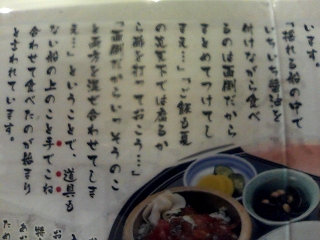 います。
「揺れる船の中で
いちいち醤油を
付けながら食べ
るのは面倒だから
まとめてつけてし
まえ…」「ご飯も夏
の炎天下では腐るか
ら酢を打っておこう…」
「面倒だからいっそうのこ
と両方を混ぜ合わせてしま
え…」ということで、道具も
ない船の上のこと手でこね
合わせて食べたのが始まり
と言われています。